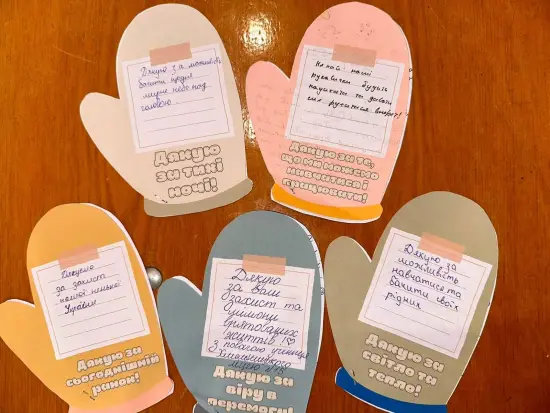 Дякую за можливість
бачити щодня
мирне небо над
головою
Дякую
за тихі
ночі!
Нехай наші
рукавички будуть
надихати та давати
сил рухатися вперед!
Дякую за те,
що ми можемо
навчатися і
працювати!
Дякуємо
за захист
нашої неньки
України
Дякую за
сьогоднішній
ранок!
Дякую
за ваш
захист та
мільйони
врятованих
життів!
З повагою учениця
ліцею №
Дякую за
віру в
перемогу!
Дякую за
можливість
навчатися та
бачити своїх
рідних
Дякую за
світло та
тепло!